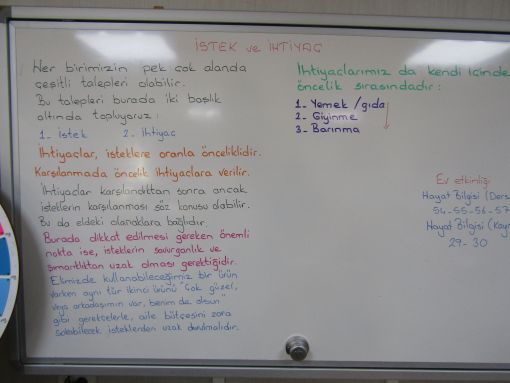 İSTEK ve İHTİYAÇ
Her birimizin pek çok alanda
çeşitli talepleri olabilir.
Bu talepleri burada iki başlık
altında topluyoruz:
1- İstek 2- İhtiyaç
İhtiyaçlar, isteklere oranla önceliklidir.
Karşılanmada öncelik ihtiyaçlara verilir.
İhtiyaçlar karşılandıktan sonra ancak
isteklerin karşılanması söz konusu olabilir.
Bu da eldeki olanaklara bağlıdır.
Burada dikkat edilmesi gereken önemli
nokta ise, isteklerin savurganlık ve
şımarıklıktan uzak olması gerektiğidir.
Elimizde kullanabileceğimiz bir ürün
varken aynı tür ikinci ürünü "Çok güzel,
veya arkadaşımın var, benim de olsun"
gibi gerekçelerle, aile bütçesini zora
sokabilecek isteklerden uzak durulmalıdır.
İhtiyaçlarımız da kendi içinde
öncelik sırasındadır:
1- Yemek / gıda
2- Giyinme
3- Barınma
Ev etkinliği
Hayat Bilgisi (Ders
54-55-56-57
Hayat Bilgisi (Kayn
29-30